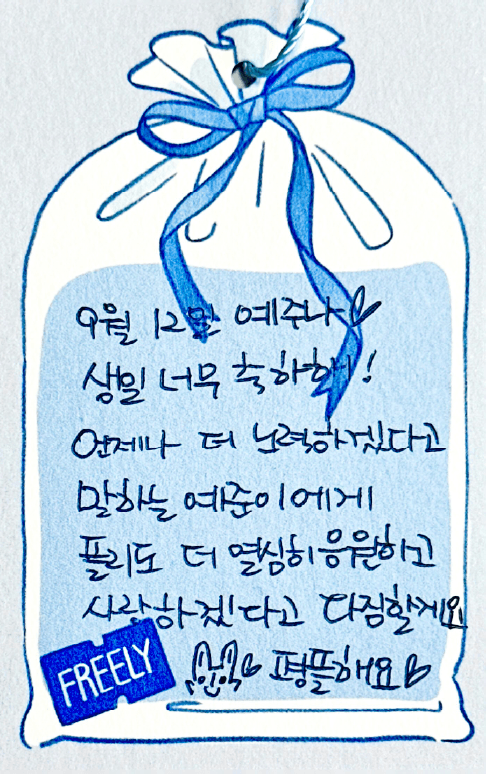 9월 12일 예주나♡
생일 너무 축하해!
언제나 더 노력하겠다고
말하는 예준이에게
플리도 더 열심히 응원하고
사랑하겠다고 다짐할게요
FREELY
평플해요♡